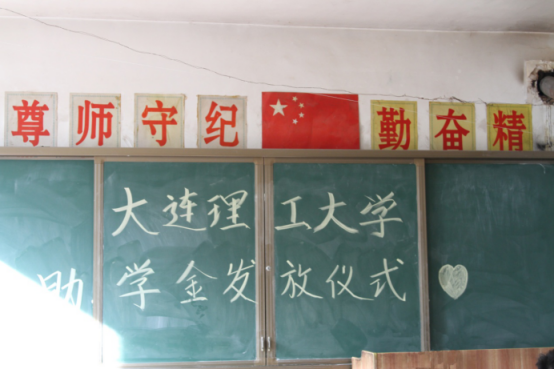 尊师守纪 勤奋精
大连理工大学
助学金发放仪式